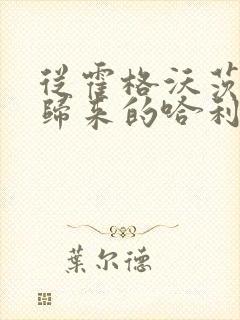 從霍格沃茨
歸来的哈利
葉尔德